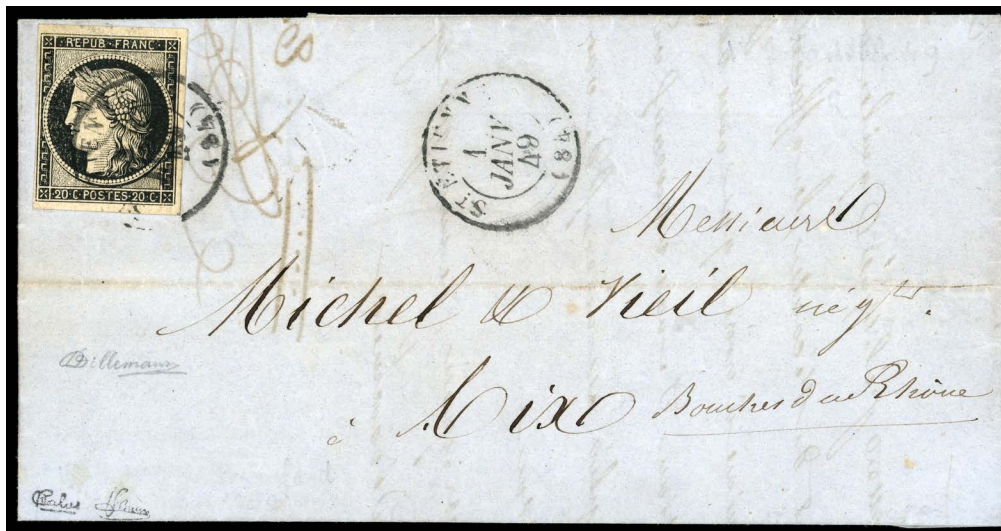 REPUB·FRANC·
·20·C·POSTES·20·C·
ST ETIENNE
1
JANV
49
(84)
Messieurs
Michel & Vieil négts.
à Aix Bouches du Rhône
Calves